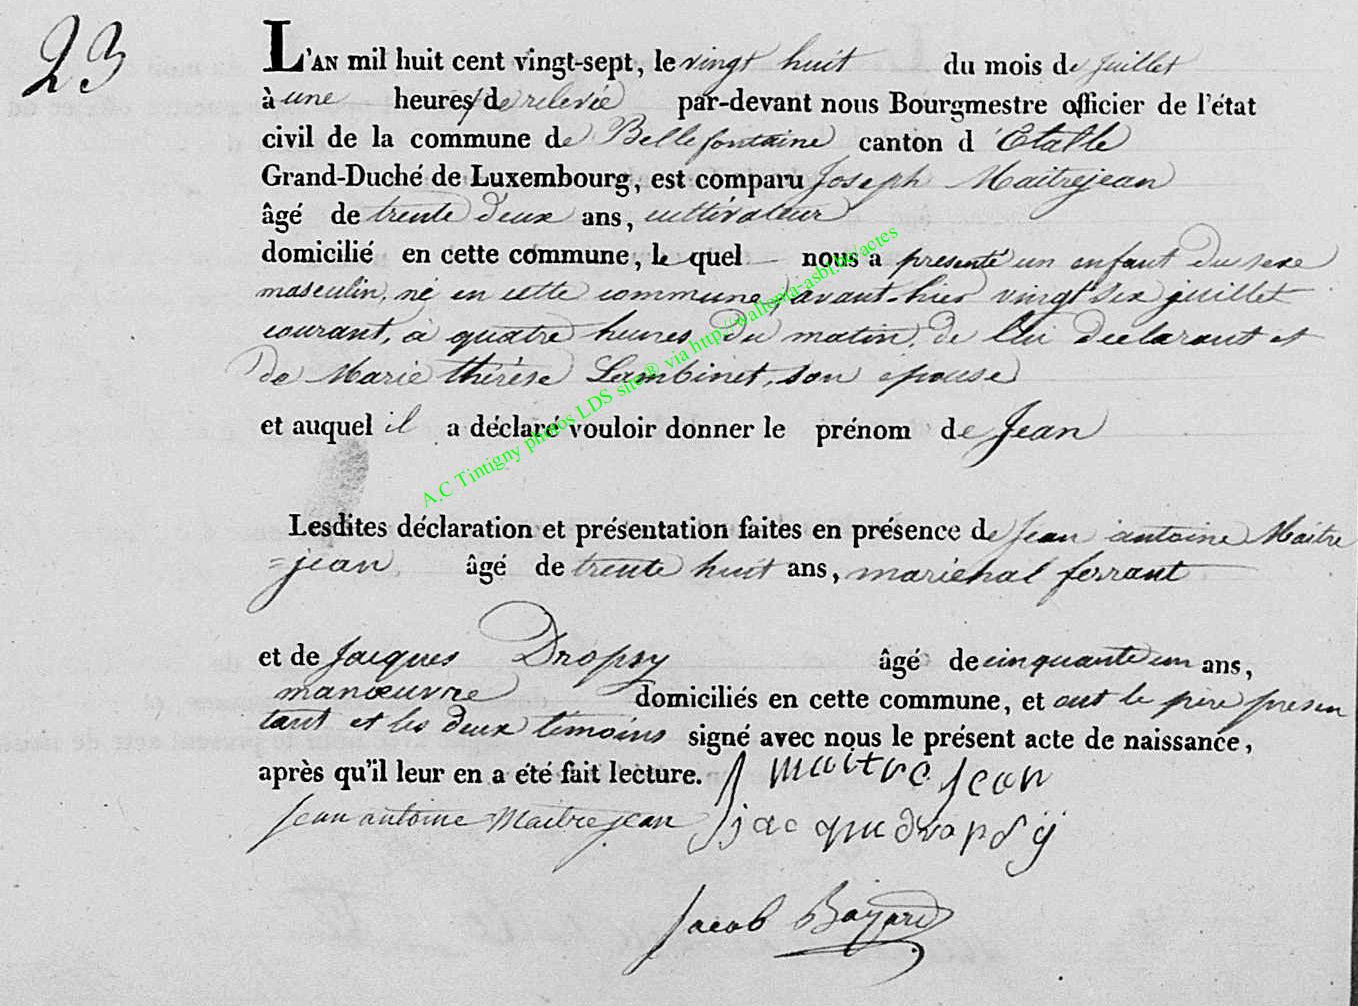 23
L'AN mil huit cent vingt-sept, le vingt huit du mois de juillet
à une heures de relevée par-devant nous Bourgmestre officier de l'état
civil de la commune de Bellefontaine canton d'Etalle
Grand-Duché de Luxembourg, est comparu Joseph Maitrejean
âgé de trente deux ans, cultivateur
domicilié en cette commune, le quel nous a presenté un enfant du sexe
masculin, né en cette commune, avant-hier vingt six juillet
courant, à quatre heures du matin, de lui declarant et
de Marie thérèse Lambinet, son epouse
et auquel il a déclaré vouloir donner le prénom de Jean
Lesdites déclaration et présentation faites en présence de Jean antoine Maitre
=jean âgé de trente huit ans, maréchal ferrant
et de Jacques Dropsy âgé de cinquante un ans,
manœuvre domiciliés en cette commune, et ont le père présen
tant et les deux témoins signé avec nous le présent acte de naissance,
après qu'il leur en a été fait lecture. J maitre jean
Jean antoine Maitrejean jacque dropsy
Jacob Bayard
A.C Tintigny photos LDS site® via http://wallonia-asbl.be/actes